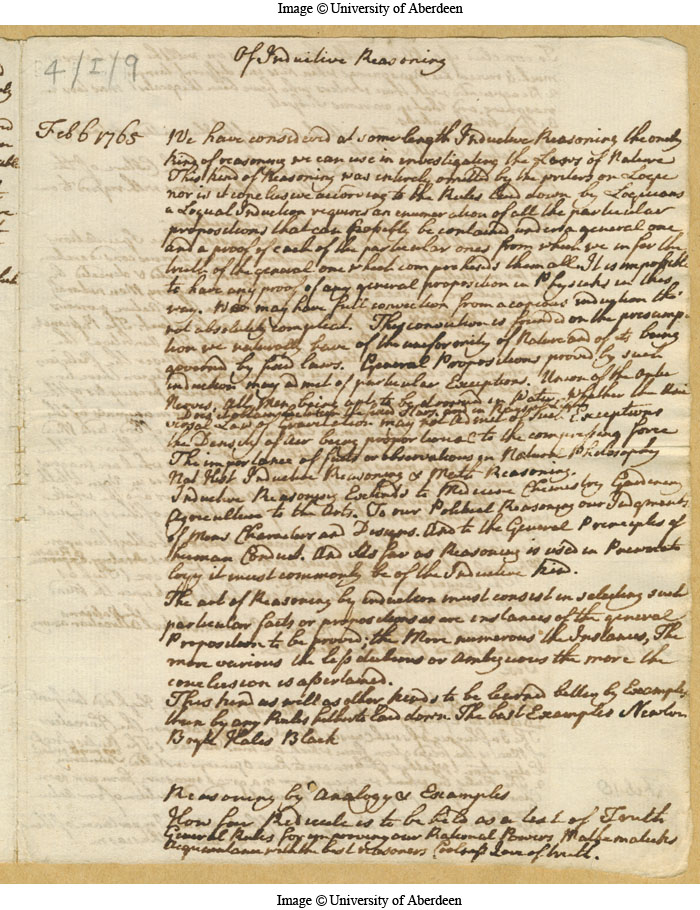 Image © University of Aberdeen
4/I/9
Of Inductive Reasoning
Feb 6 1765
We have considered at some length Inductive Reasoning the onely
kind of reasoning we can use in investigating the Laws of Nature
This kind of Reasoning was intirely omitted by the writers on Logic
nor is it conclusive according to the Rules laid down by Logicians
a Logical Induction requires an enumeration of all the particular
propositions that can possibly be contained under a general one
and a proof of each of the particular ones from which we infer the
truth of the general one which comprehends them all. It is impossible
to have any proof of any general proposition in Physicks in this
way. We may have full conviction from a copious induction tho
not absolutely compleat. This conviction is founded on the presump-
tion we naturally have of the uniformity of Nature and of its being
governd by fixed laws. General Propositions proved by such
induction may admit of particular Exceptions. Union of the Optic
Nerves, All Men being apt to be drowned in Water. Whether the Uni
versal Law of Gravitation may not admit of such Exceptions
the fixed Stars, and in
the Density of Air being proportional to the compressing force
The importance of facts or observations in Natural Philosophy
Nat Hist Inductive Reasoning & Meth Reasoning.
Inductive Reasoning Extends to Medicine Chemistry Gardening
Agriculture to the Arts. To our Political Reasoning our Judgments
of Mens Characters and Designs. And to the General Principles of
human Conduct. And As far as Reasoning is used in Pneumato
logy it must commonly be of the Inductive kind.
The art of Reasoning by induction must consist in selecting such
particular facts or propositions as are instances of the general
Proposition to be proved; the More numerous the Instances, The
more various the less dubious or Ambiguous the more the
conclusion is ascertained.
This kind as well as other kinds to be learnd better by Examples
than by any Rules hitherto laid down. The best Examples Newton
Boyle Hales Black
Reasoning by Analogy & Examples
How far Ridicule is to be held as a test of Truth
General Rules for improving our Rational Powers Mathematicks
Acquaintance with the best reasoners Love of truth.
Image © University of Aberdeen